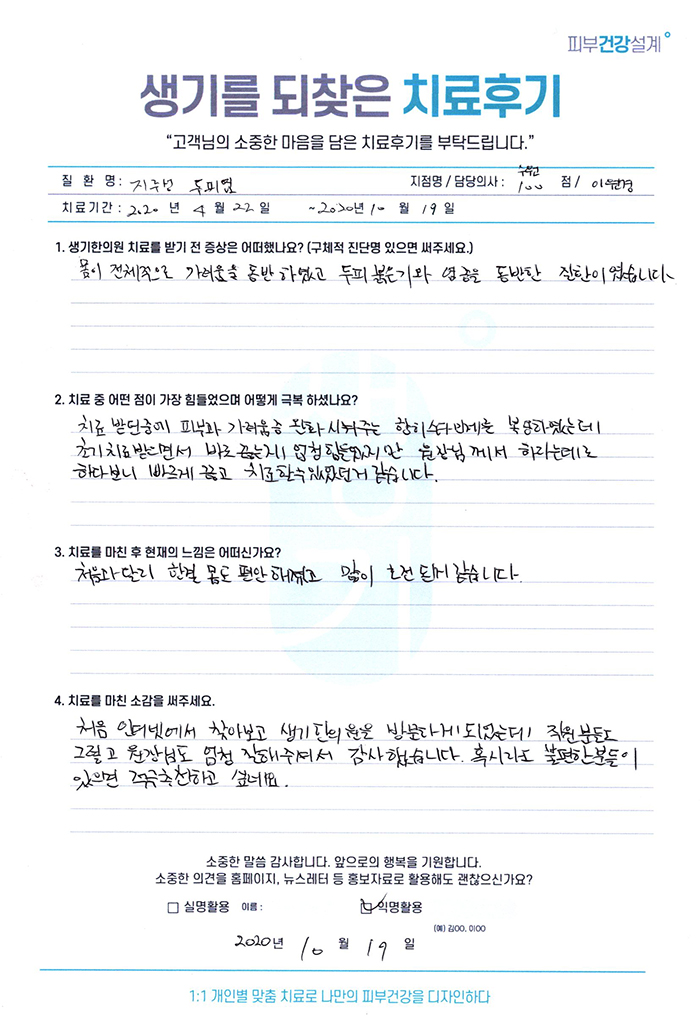 피부건강설계
생기를 되찾은 치료후기
“고객님의 소중한 마음을 담은 치료후기를 부탁드립니다.”
질 환 명 : 지루성 두피염 지점명 / 담당의사 : 수원 점 /
치료기간 : 2020 년 4 월 22 일 ~2020년 10 월 19 일
1. 생기한의원 치료를 받기 전 증상은 어떠했나요? (구체적 진단명 있으면 써주세요.)
몸이 전체적으로 가려움을 동반하였고 두피 붉은기와 염증을 동반한 질환이였습니다
2. 치료 중 어떤 점이 가장 힘들었으며 어떻게 극복 하셨나요?
치료 받던중에 피부와 가려움증 완화 시켜주는 항히스타민제를 복용하였는데
초기치료받으면서 바로 끊는게 엄청힘들었지만 원장님께서 하라는데로
하다보니 빠르게 끊고 치료할수있었던거 같습니다.
3. 치료를 마친 후 현재의 느낌은 어떠신가요?
처음과 달리 한결 몸도 편안해졌고 많이 호전된거 같습니다.
4. 치료를 마친 소감을 써주세요.
처음 인터넷에서 찾아보고 생기한의원을 방문하게되었는데 직원분들도
그렇고 원장님도 엄청 잘해주셔서 감사했습니다. 혹시라도 불편한분들이
있으면 적극추천하고 싶네요.
소중한 말씀 감사합니다. 앞으로의 행복을 기원합니다.
소중한 의견을 홈페이지, 뉴스레터 등 홍보자료로 활용해도 괜찮으신가요?
실명활용 이름 : 익명활용
(예) 김OO, 이OO
2020년 10 월 19 일
1:1 개인별 맞춤 치료로 나만의 피부건강을 디자인하다